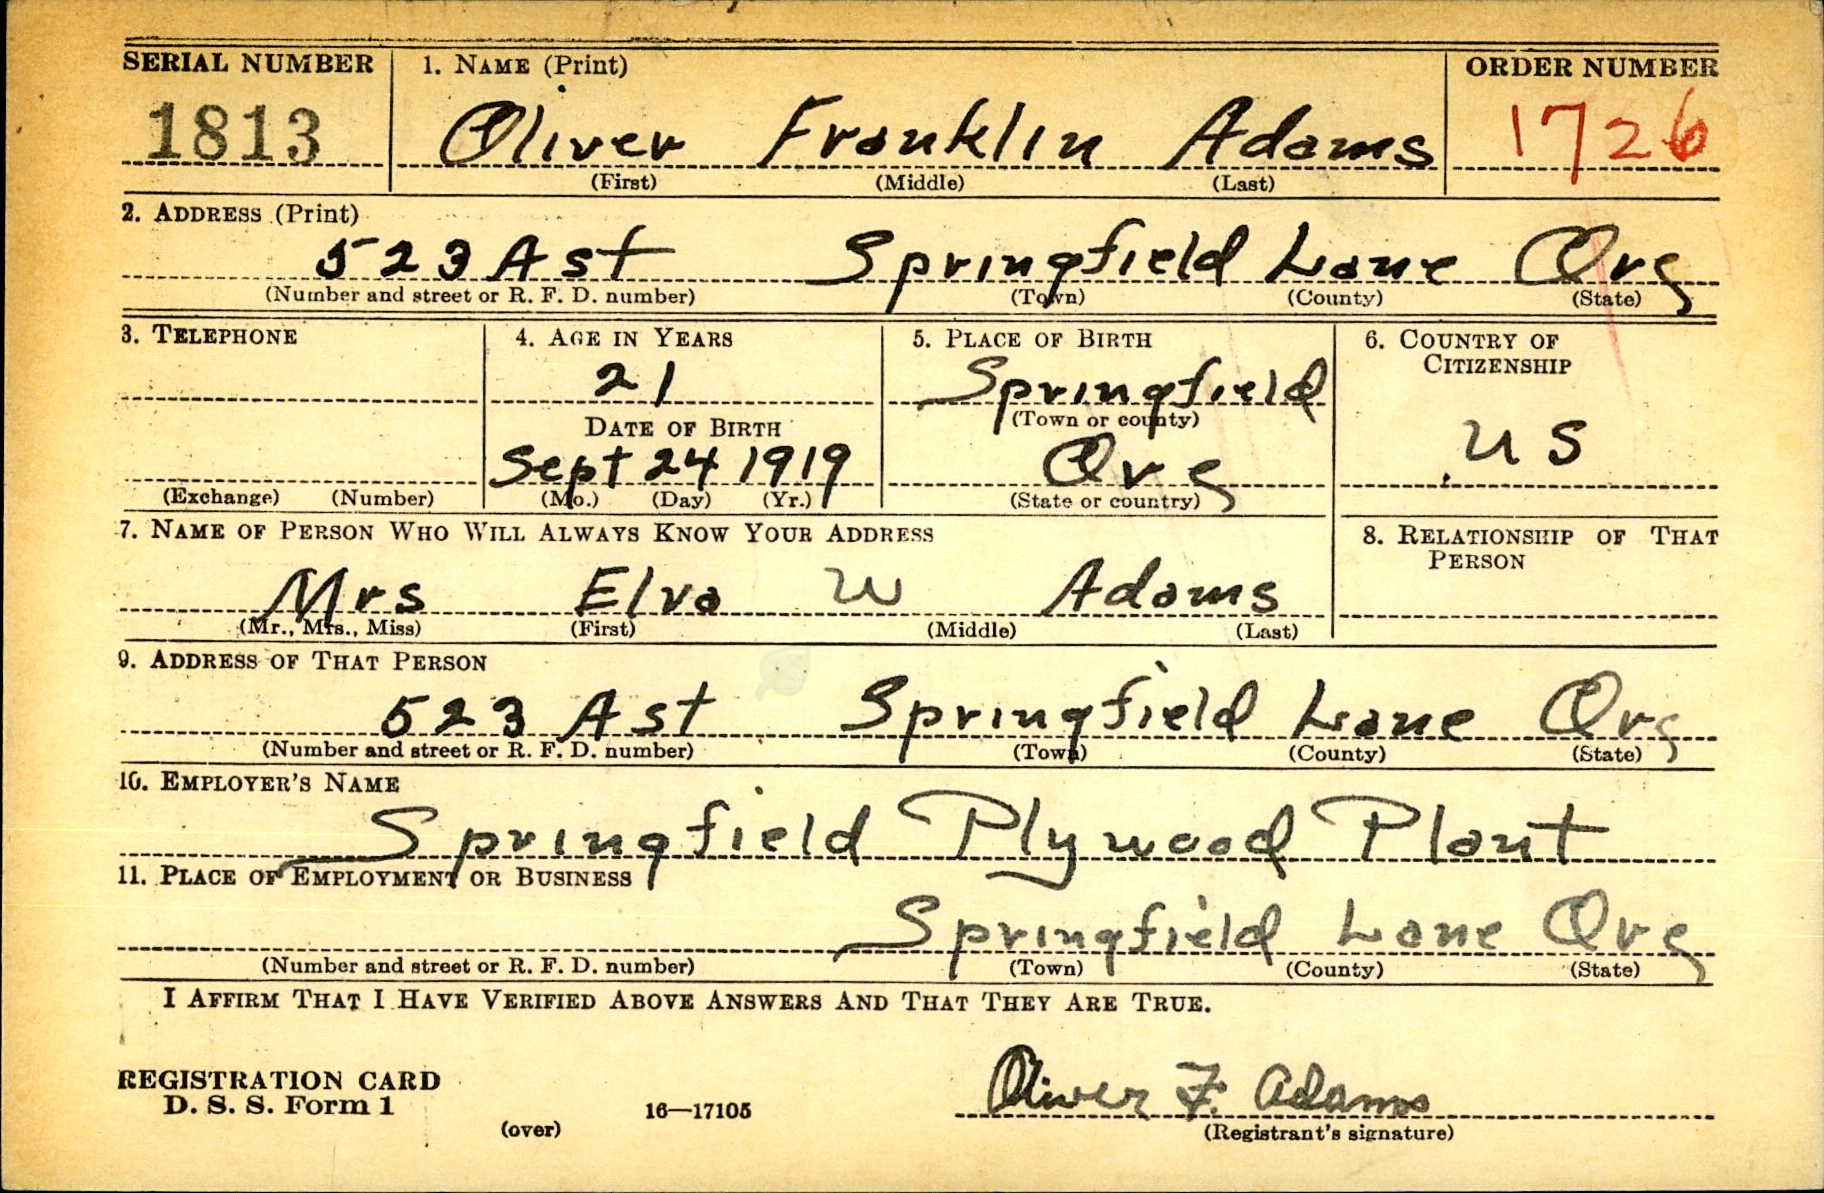 SERIAL NUMBER 1. NAME (Print) ORDER NUMBER
1813 Oliver Franklin Adams 1726
(First) (Middle) (Last)
2. ADDRESS (Print)
523 A st Springfield Lane Ore
(Number and street or R. F. D. number) (Town) (County) (State)
3. TELEPHONE 4. AGE IN YEARS 5. PLACE OF BIRTH 6. COUNTRY OF
CITIZENSHIP
21 Springfield
(Town or county)
DATE OF BIRTH
Sept 24 1919 Ore U S
(Exchange) (Number) (Mo.) (Day) (Yr.) (State or country)
7. NAME OF PERSON WHO WILL ALWAYS KNOW YOUR ADDRESS 8. RELATIONSHIP OF THAT
PERSON
Mrs Elva W Adams
(Mr., Mrs., Miss) (First) (Middle) (Last)
9. ADDRESS OF THAT PERSON
523 A st Springfield Lane Ore
(Number and street or R. F. D. number) (Town) (County) (State)
10. EMPLOYER'S NAME
Springfield Plywood Plant
11. PLACE OF EMPLOYMENT OR BUSINESS
Springfield Lane Ore
(Number and street or R. F. D. number) (Town) (County) (State)
I AFFIRM THAT I HAVE VERIFIED ABOVE ANSWERS AND THAT THEY ARE TRUE.
REGISTRATION CARD
D. S. S. Form 1 16—17105 Oliver F. Adams
(over) (Registrant's signature)